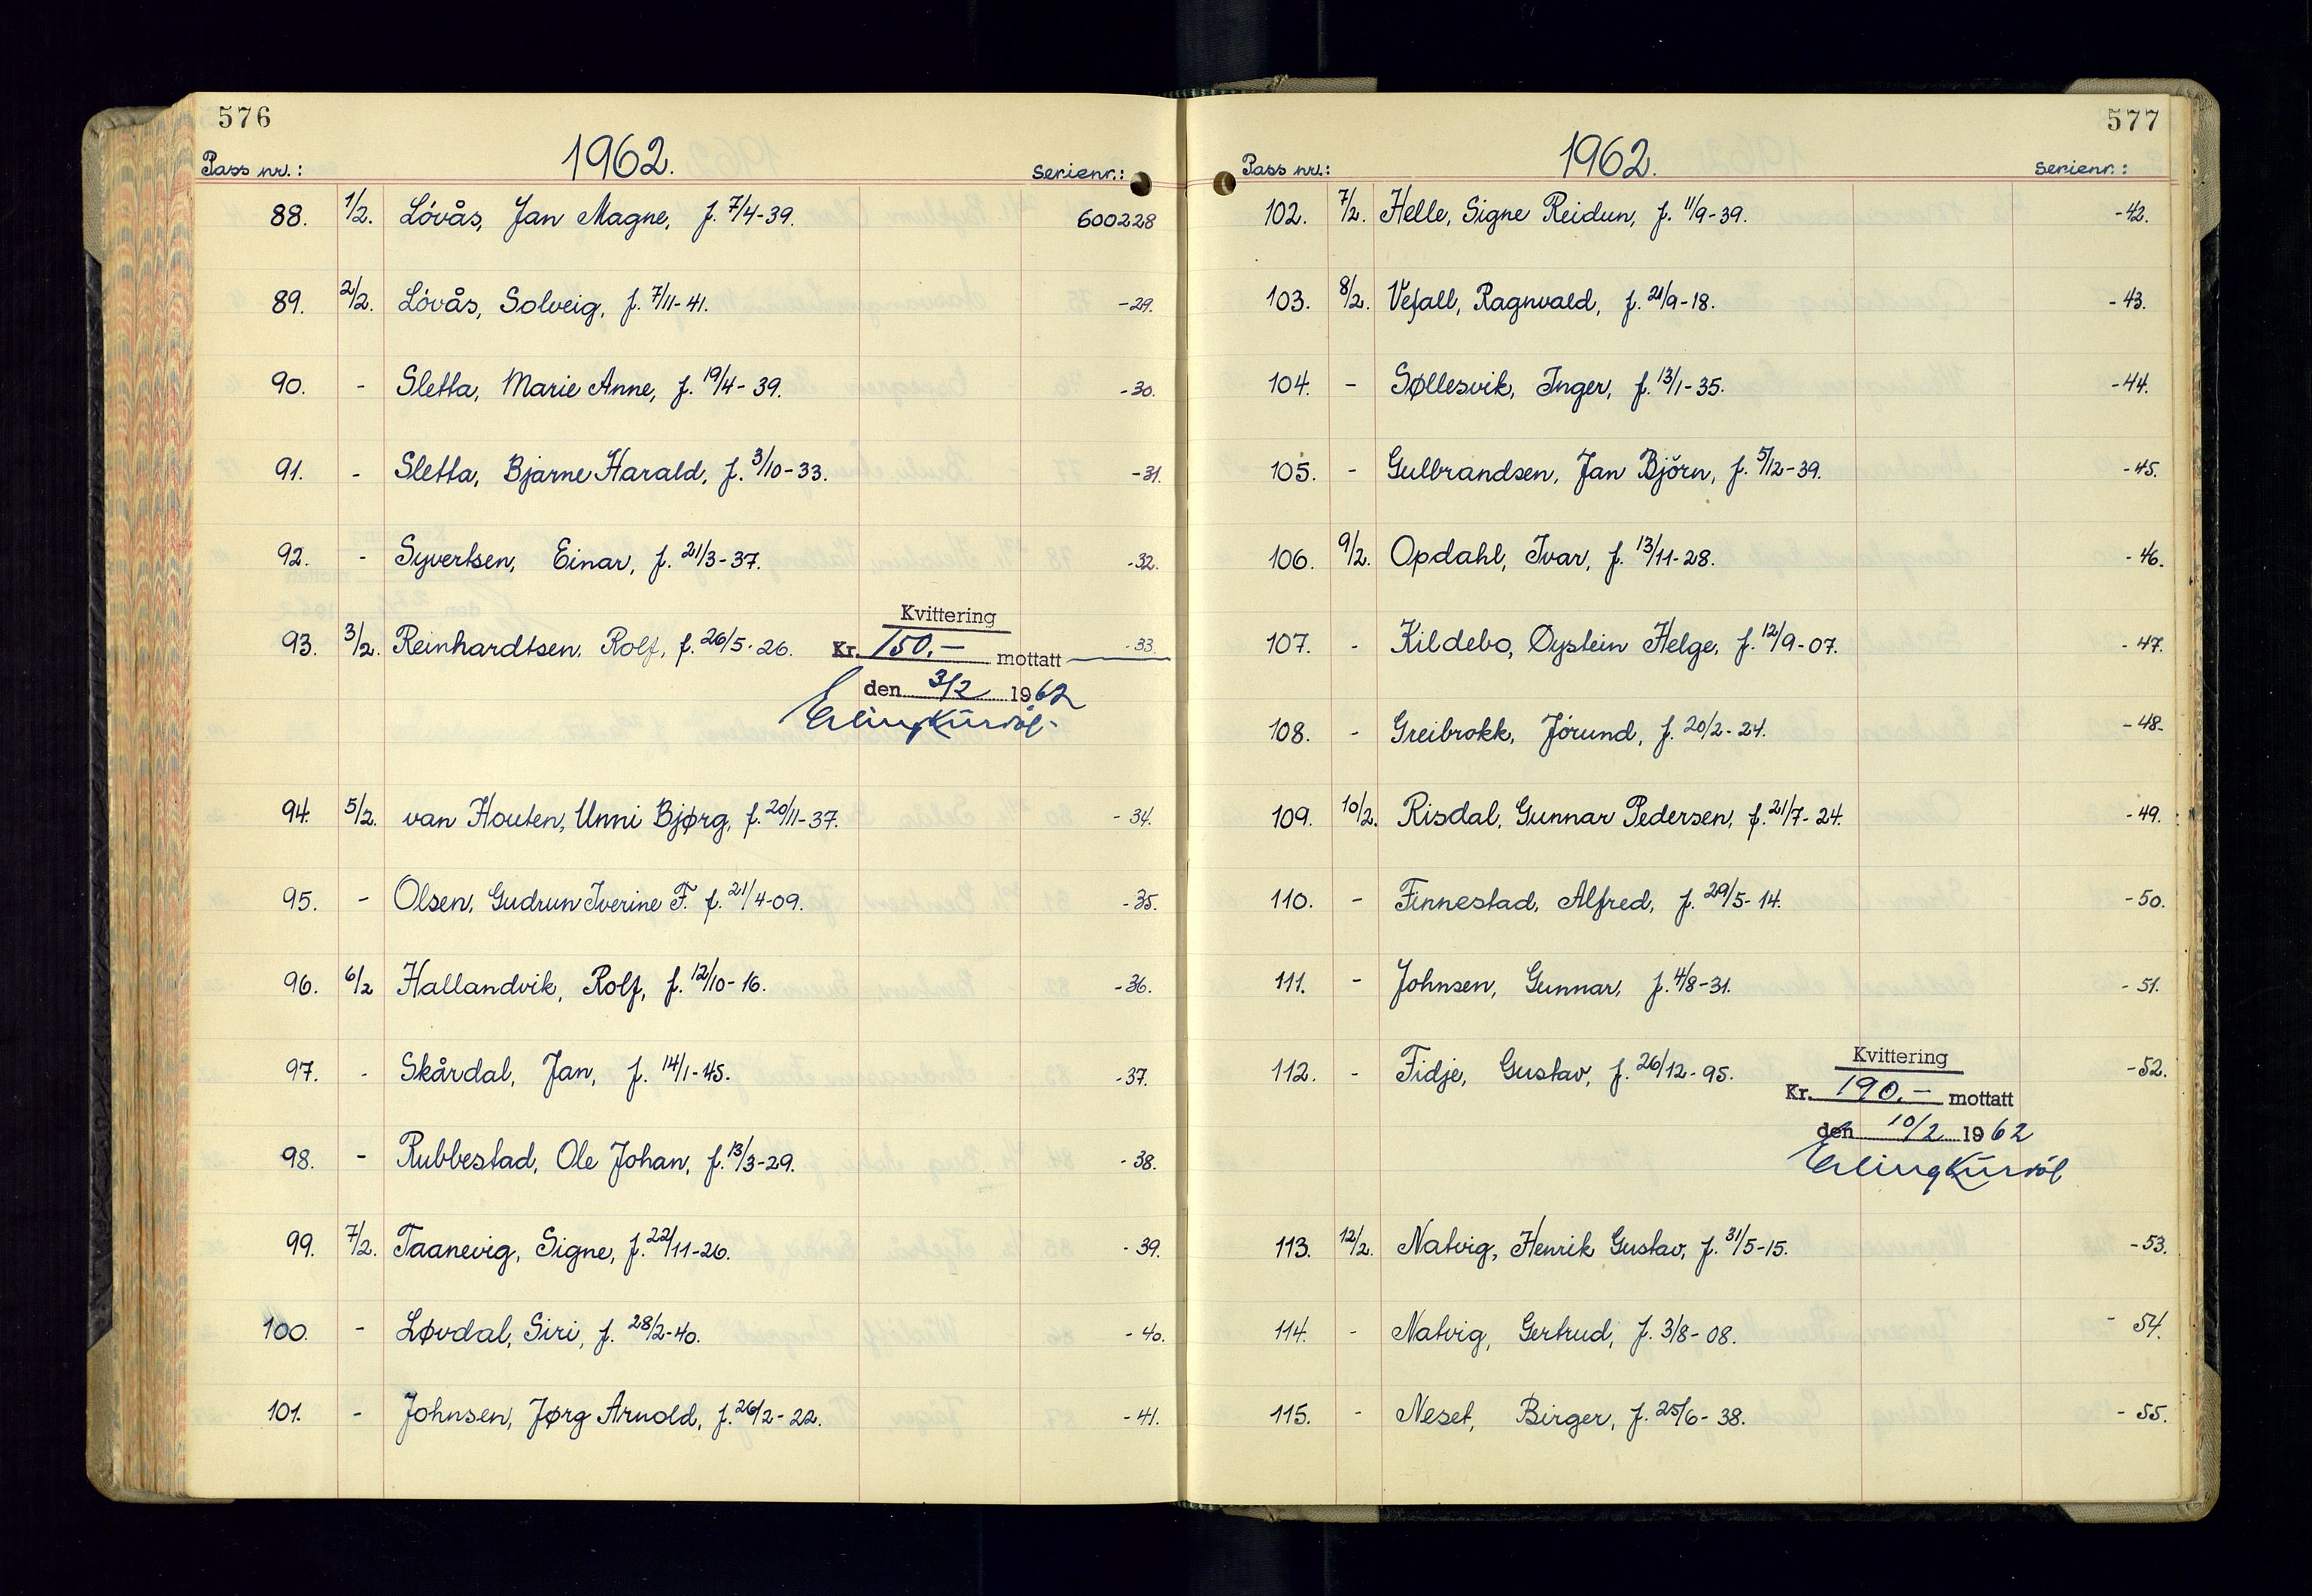 576
1962.
Pass nr.: Serienr.:
88. 1/2. Lövås, Jan Magne, f. 7/4-39. 600228
89. 2/2. Lövås, Solveig, f. 7/11-41. -29.
90. - Sletta, Marie Anne, f. 19/4-39. -30.
91. - Sletta, Bjarne Harald, f. 3/10-33. -31.
92. - Syvertsen, Einar, f. 21/3-37. -32.
93. 3/2. Reinhardtsen, Rolf, f. 26/5-26. -33.
Kvittering
Kr. 150.- mottatt
den 3/2 1962
Erling
94. 5/2. van Houten, Unni Bjørg, f. 20/11-37. -34.
95. - Olsen, Gudrun Iverine F. f. 21/4-09. -35.
96. 6/2 Hallandvik, Rolf, f. 12/10-16. -36.
97. - Skårdal, Jan, f. 14/1-45. -37.
98. - Rubbestad, Ole Johan, f. 13/3-29. -38.
99. 7/2. Taanevig, Signe, f. 22/11-26. -39.
100. - Løvdal, Siri, f. 28/2-40. -40.
101. - Johnsen, Jørg Arnold, f. 26/2-22. -41.
577
1962.
Pass nr.: Serienr.:
102. 7/2. Helle, Signe Reidun, f. 11/9-39. -42.
103. 8/2. Vefall, Ragnvald, f. 21/9-18. -43.
104. - Søllesvik, Inger, f. 13/1-35. -44.
105. - Gulbrandsen, Jan Björn, f. 5/12-39. -45.
106. 9/2. Opdahl, Ivar, f. 13/11-28. -46.
107. - Kildebo, Øystein Helge, f. 12/9-07. -47.
108. - Greibrokk, Jörund, f. 20/2-24. -48.
109. 10/2. Risdal, Gunnar Pedersen, f. 21/7-24. -49.
110. - Finnestad, Alfred, f. 29/5-14. -50.
111. - Johnsen, Gunnar, f. 4/8-31. -51.
112. - Fidje, Gustav, f. 26/12-95. -52.
Kvittering
Kr. 190.- mottatt
den 10/2 1962
Erling
113. 12/2. Natvig, Henrik Gustav, f. 31/5-15. -53.
114. - Natvig, Gertrud, f. 3/8-08. - 54.
115. - Neset, Birger, f. 25/6-38. - 55.